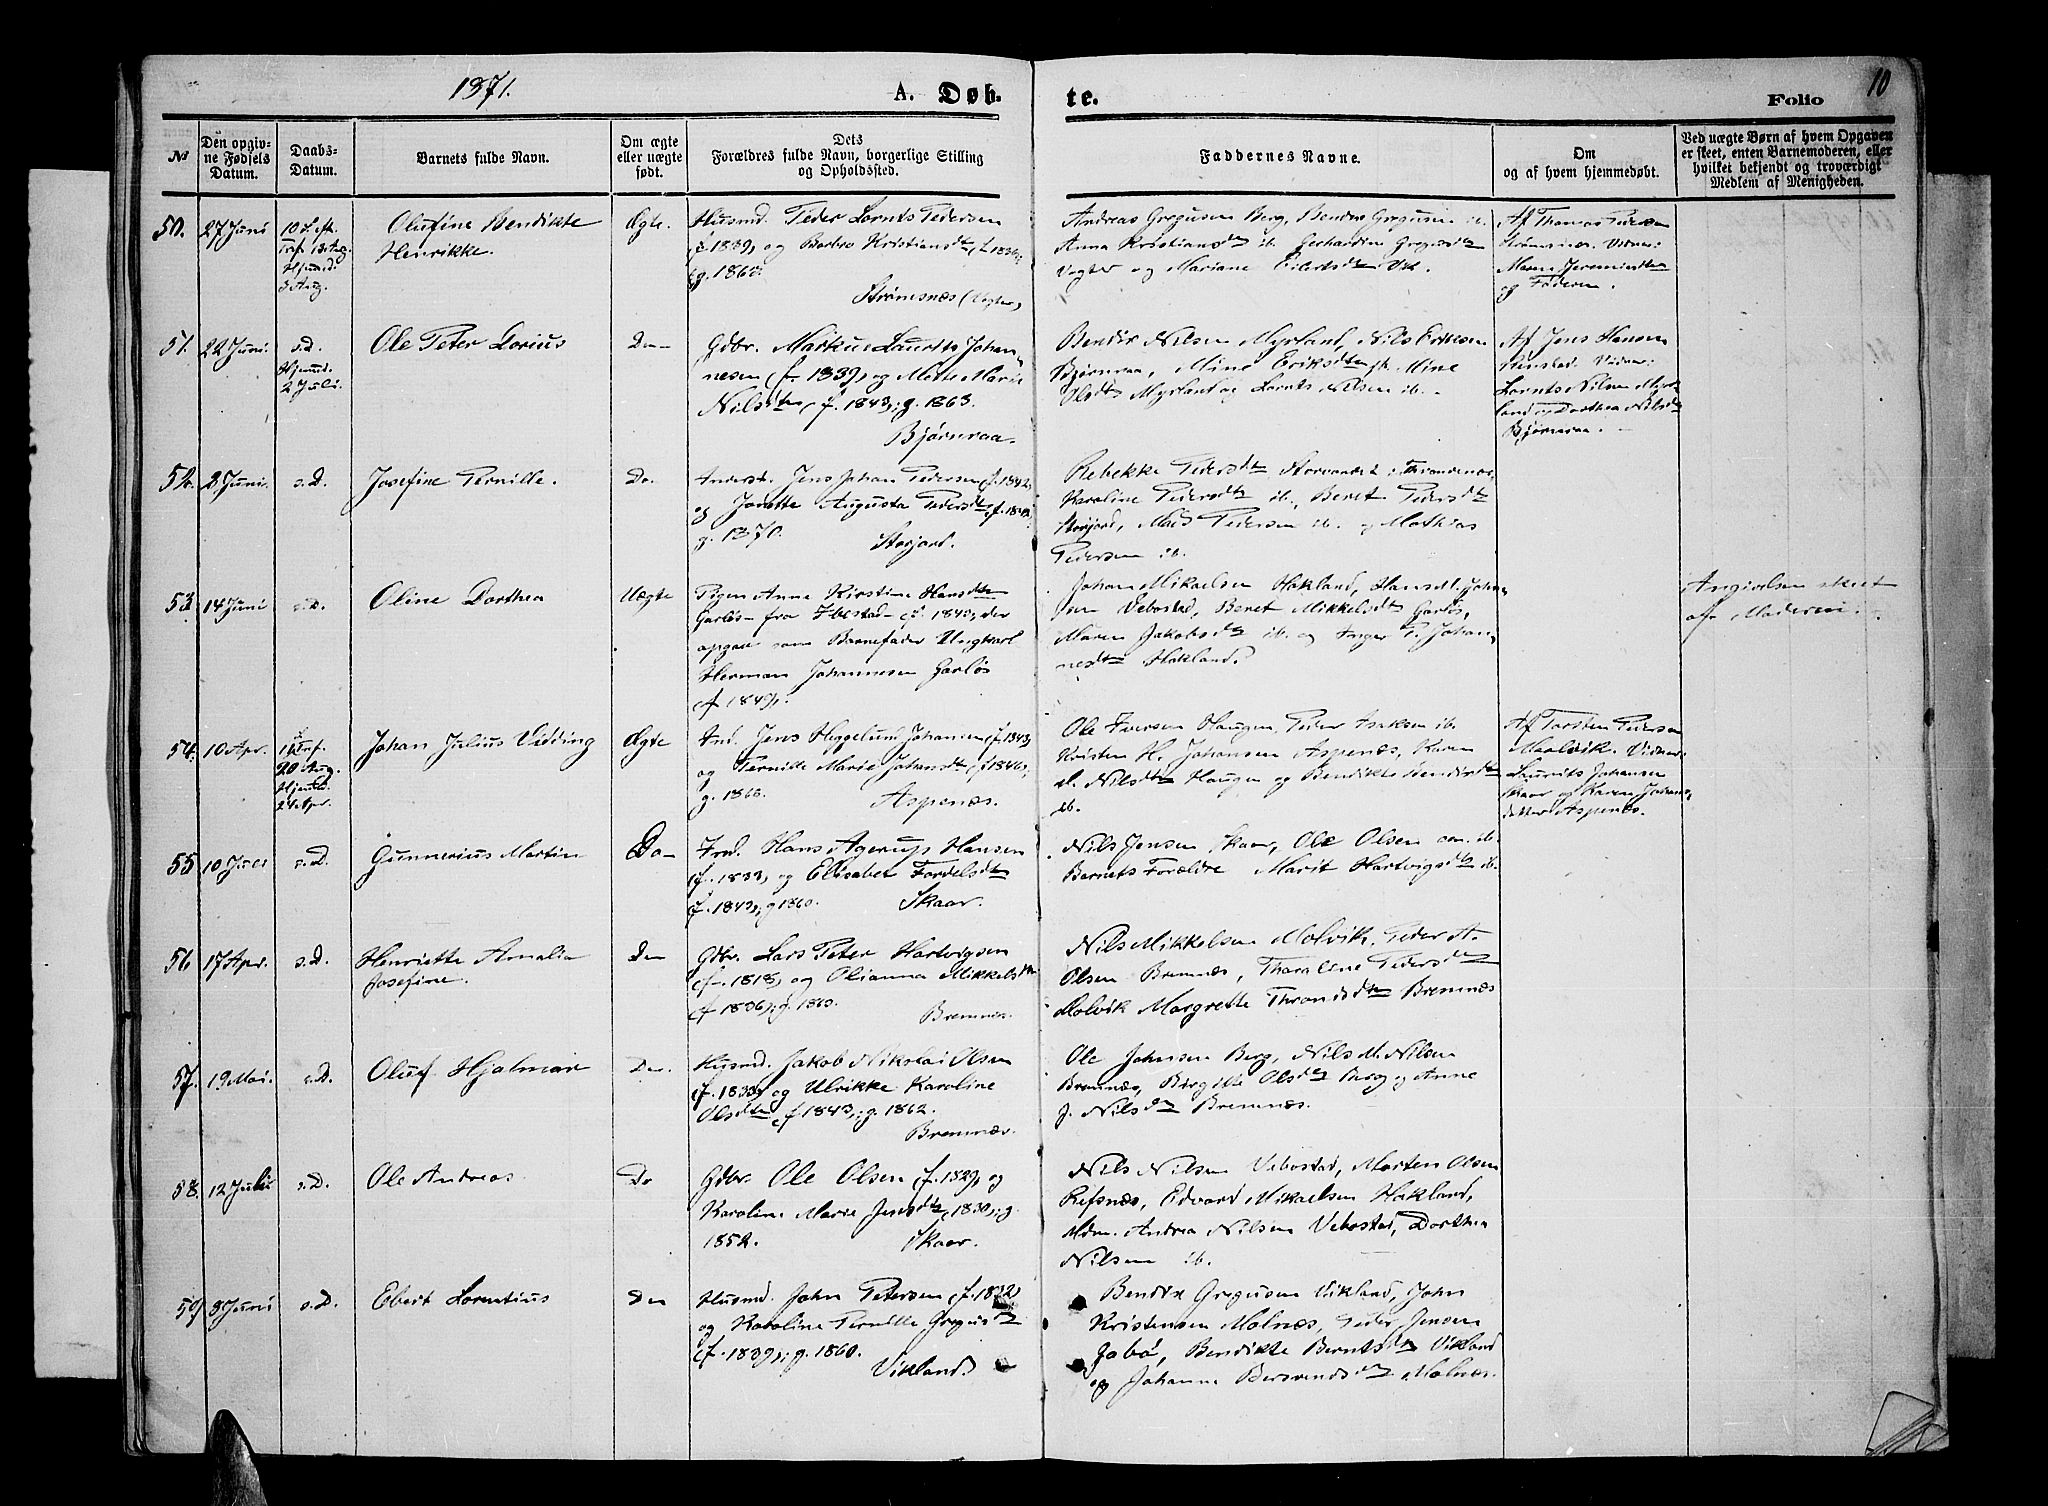 1871.
A. Døb-
te.
Folio
10
№
Den opgiv-
ne Fødsels
Datum.
Daabs-
Datum.
Barnets fulde Navn.
Om ægte
eller uægte
født.
Dets
Forældres fulde Navn, borgerlige Stilling
og Opholdssted.
Faddernes Navne.
Om
og af hvem hjemmedøbt.
Ved uægte Børn af hvem Opgaven
er skeet, enten Barnemoderen, eller
hvilket bekjendt og troværdigt
Medlem af Menigheden.
50.
27 Juni
10 S. eft.
Tref. 13 Aug.
Hjemd.
3 Aug.
Olufine Bendikte
Henrikke.
Ægte.
Husmd. Peder Lornts Pedersen
(f. 1839) og Barbro Kristiansdtr (f. 1836);
g. 1860.
Strømsnæs (Vogter)
Andreas Gregusen Berg, Bendix Gregusen ib.
Anna Kristiansdtr ib. Gerhardine Gregusdtr
Vogter og Mariane Eilertsdtr Vik.
Af Thomas Pedersen
Strømsnæs. Vidner:
Maren Jeremiasdtr
og Faderen.
51.
22 Juni.
s. D.
Hjemd.
2 Juli.
Ole Peter Lorius
Do-
Gdbr. Markus Laurits Johan-
nesen (f. 1839) og Mette Marie
Nilsdtr (f. 1843); g. 1863.
Bjørnraa.
Bendix Nilsen Myrland, Nils Eriksen
Bjørnraa, Mine Eriksdtr ib. Mine
Olsdtr Myrland og Lornts Nilsen ib.
Af Jens Hansen
Renstad. Vidner:
Lornts Nilsen Myr-
land og Dorthea Nilsdtr
Bjørnraa.
52.
2 Juni.
s. D.
Josefine Pernille.
Do.
Inderst. Jens Johan Pedersen (f. 1842)
og Joratte Augusta Pedersdtr (f. 1842);
g. 1870.
Storjord.
Rebekke Pedersdtr Storvandet i Throndenæs,
Karoline Pedersdtr ib., Beret Pedersdtr
Storjord, Mads Pedersen ib. og Mathias
Pedersen ib.
53.
14 Juni
s. D.
Oline Dorthea
Uægte
Pigen Anne Kirstine Hansdtr
Garløs fra Ibestad (f. 1843), der
opgav som Barnefader Ungkarl
Herman Johannesen Garløs
(f. 1849).
Johan Mikaelsen Hokland, Hans M. Johan-
sen Vebostad, Beret Mikkelsdtr Garløs,
Maren Jakobsdtr ib. og Inger P. Johan-
nesdtr Hokland.
Angivelsen skeet
af Moderen.
54.
10 Apr.
11 Tref.
20 Aug.
Hjemd.
24 Apr.
Johan Julius Vidding
Ægte
Ind. Jens Heggelund Johansen (f. 1843)
og Pernille Marie Johansdtr (f. 1846);
g. 1868.
Aspenæs.
Ole Iversen Haugen, Peder Isaksen ib.
Kristen H. Johansen Aspenæs, Karen
Nilsdtr Haugen og Bendikte Bendixdtr
ib.
Af Torsten Pedersen
Molvik. Vidner:
Laurits Johansen
Skaar og Karen Johans-
datter Aspenæs.
55
10 Juli
s. D.
Gunnerius Martin
Do-
Ind. Hans Agerup Hansen
(f. 1833) og Elisabet Fordelsdtr
(f. 1843); g 1860.
Skaar.
Nils Jensen Skaar, Ole Olsen ib.
Barnets Forældre Marit Hartvigsdtr ib.
56
17 Apr.
s. D.
Henriette Amalia
Josefine.
Do
Gdbr. Lars Peter Hartvigsen
(f. 1818) og Olianna Mikkelsdtr
(f 1836); g. 1860.
Bremnes.
Nils Mikkelsen Molvik, Peder A.
Olsen Bremnæs, Tharaline Pedersdtr
Molvik Margrette Thronsdtr Bremnæs
57.
19 Mai.
s. D.
Oluf Hjalmar
Do.
Husmd. Jakob Nikolai Olsen
(f. 1833) og Ulrikke Karoline
Olsdtr (f 1843); g. 1862.
Bremnæs.
Ole Johnsen Berg, Nils M. Nilsen
Bremnæs, Birgitte Olsdtr Berg og Anne
J. Nilsdtr Bremnæs.
58.
12 Juli
s. D.
Ole Andreas
Do
Gdbr. Ole Olsen (f. 1829) og
Karoline Marie Jensdtr (1830); g.
1852.
Skaar.
Nils Nilsen Vebostad, Morten Olsen
Refsnæs, Edvard Mikaelsen Hokland,
Mdm. Andrea Nilsen Vebostad, Dorthea
Nilsen ib.
59
8 Juni
s. D.
Ebert Lorentius
Do
Husmd. John Petersen (f. 1832)
og Karoline Pernille Gregusdtr
(f. 1839); g. 1860.
Vikland.
Bendix Gregusen Vikland, John
Kristensen Molnæs, Peder Jensen
Jabø, Bendikte Berntsdtr Vikland
og Johanna Bersvendsdtr Molnæs.